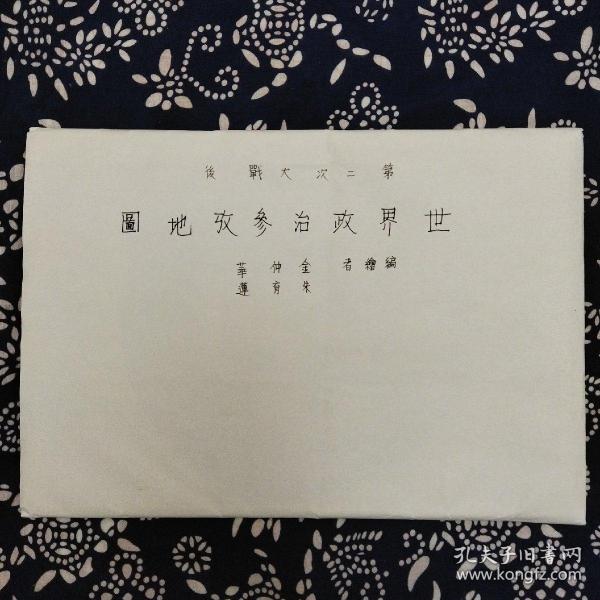 第二次大戰後
世界政治參攷地圖
編繪者 金仲華
朱育蓮
孔夫子旧書网
www.kongfz.com